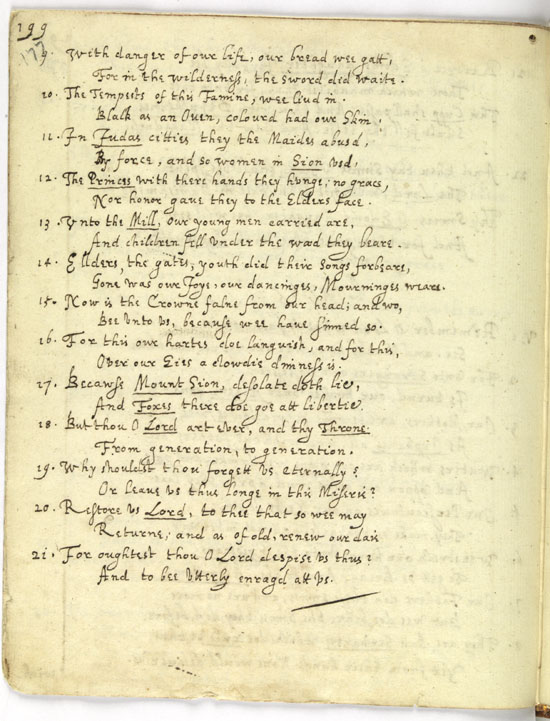 199
177
9. With danger of our life, our bread wee gatt,
For in the wilderness, the sword did waite.
10. The Tempests of this Famine, wee livd in.
Blak as an Oven, colourd had our Skin,
11. In Judas citties they the Maides abusd,
By force, and so women in Sion vsd,
12. The Princes with there hands they hunge; no grace,
Nor honor gave they to the Elders face.
13. Vnto the Mill, our young men carried are,
And children fell vnder the wad they beare.
14. Ellders, the gates, youth did their Songs forbeare,
Gone was our Joye, our dancinges, Mourninges weare.
15. Now is the Crowne falne from our head; and wo,
Bee vnto vs, because wee have sinned so.
16. For this our hartes doe languish, and for this,
Over our Eies a clowdie dimness is.
17. Becawse Mount Sion, desolate doth lie,
And Foxes there doe goe att libertie.
18. But thou O Lord art ever, and thy Throne
From generation, to generation.
19. Why shouldst thou forgett vs eternally?
Or leave vs thus longe in this Miserie?
20. Restore vs Lord, to thee that so wee may
Returne, and as of old, renew our daie
21. For oughtest thou O Lord despise vs thus?
And to bee vtterly enragd att vs.